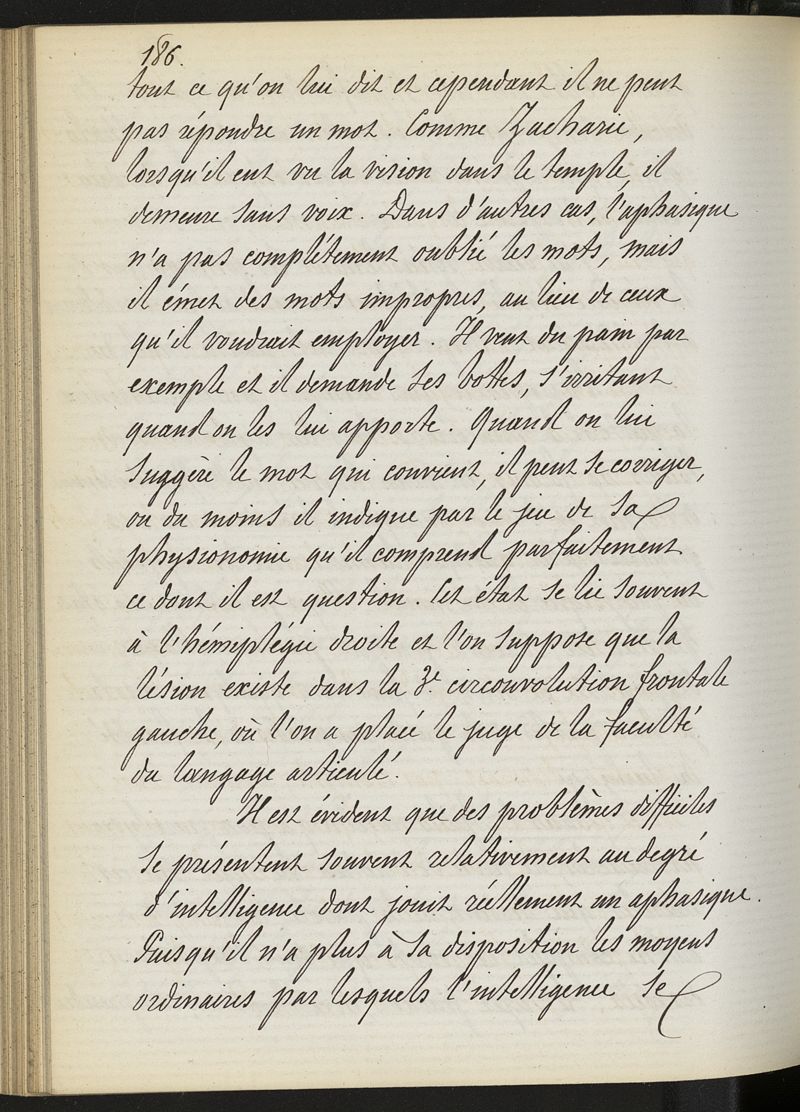 186.
tout ce qu'on lui dit et cependant il ne peut
pas répondre un mot. Comme Zacharie,
lorsqu'il eut vu la vision dans le temple, il
demeure sans voix. Dans d'autres cas, l'aphasique
n'a pas complétement oublié les mots, mais
il émet des mots impropres, au lieu de ceux
qu'il voudrait employer. Il veut du pain par
exemple et il demande ses bottes, s'irritant
quand on les lui apporte. Quand on lui
suggère le mot qui convient, il peut se corriger,
ou du moins il indique par le jeu de sa
physionomie qu'il comprend parfaitement
ce dont il est question. Cet état se lie souvent
à l'hémiplégie droite et l'on suppose que la
lésion existe dans la 3e. circonvolution frontale
gauche, où l'on a placé le juge de la faculté
du langage articulé.
Il est évident que des problèmes difficiles
se présentent souvent relativement au degré
d'intelligence dont jouit réellement un aphasique.
Puisqu'il n'a plus à sa disposition les moyens
ordinaires par lesquels l'intelligence se